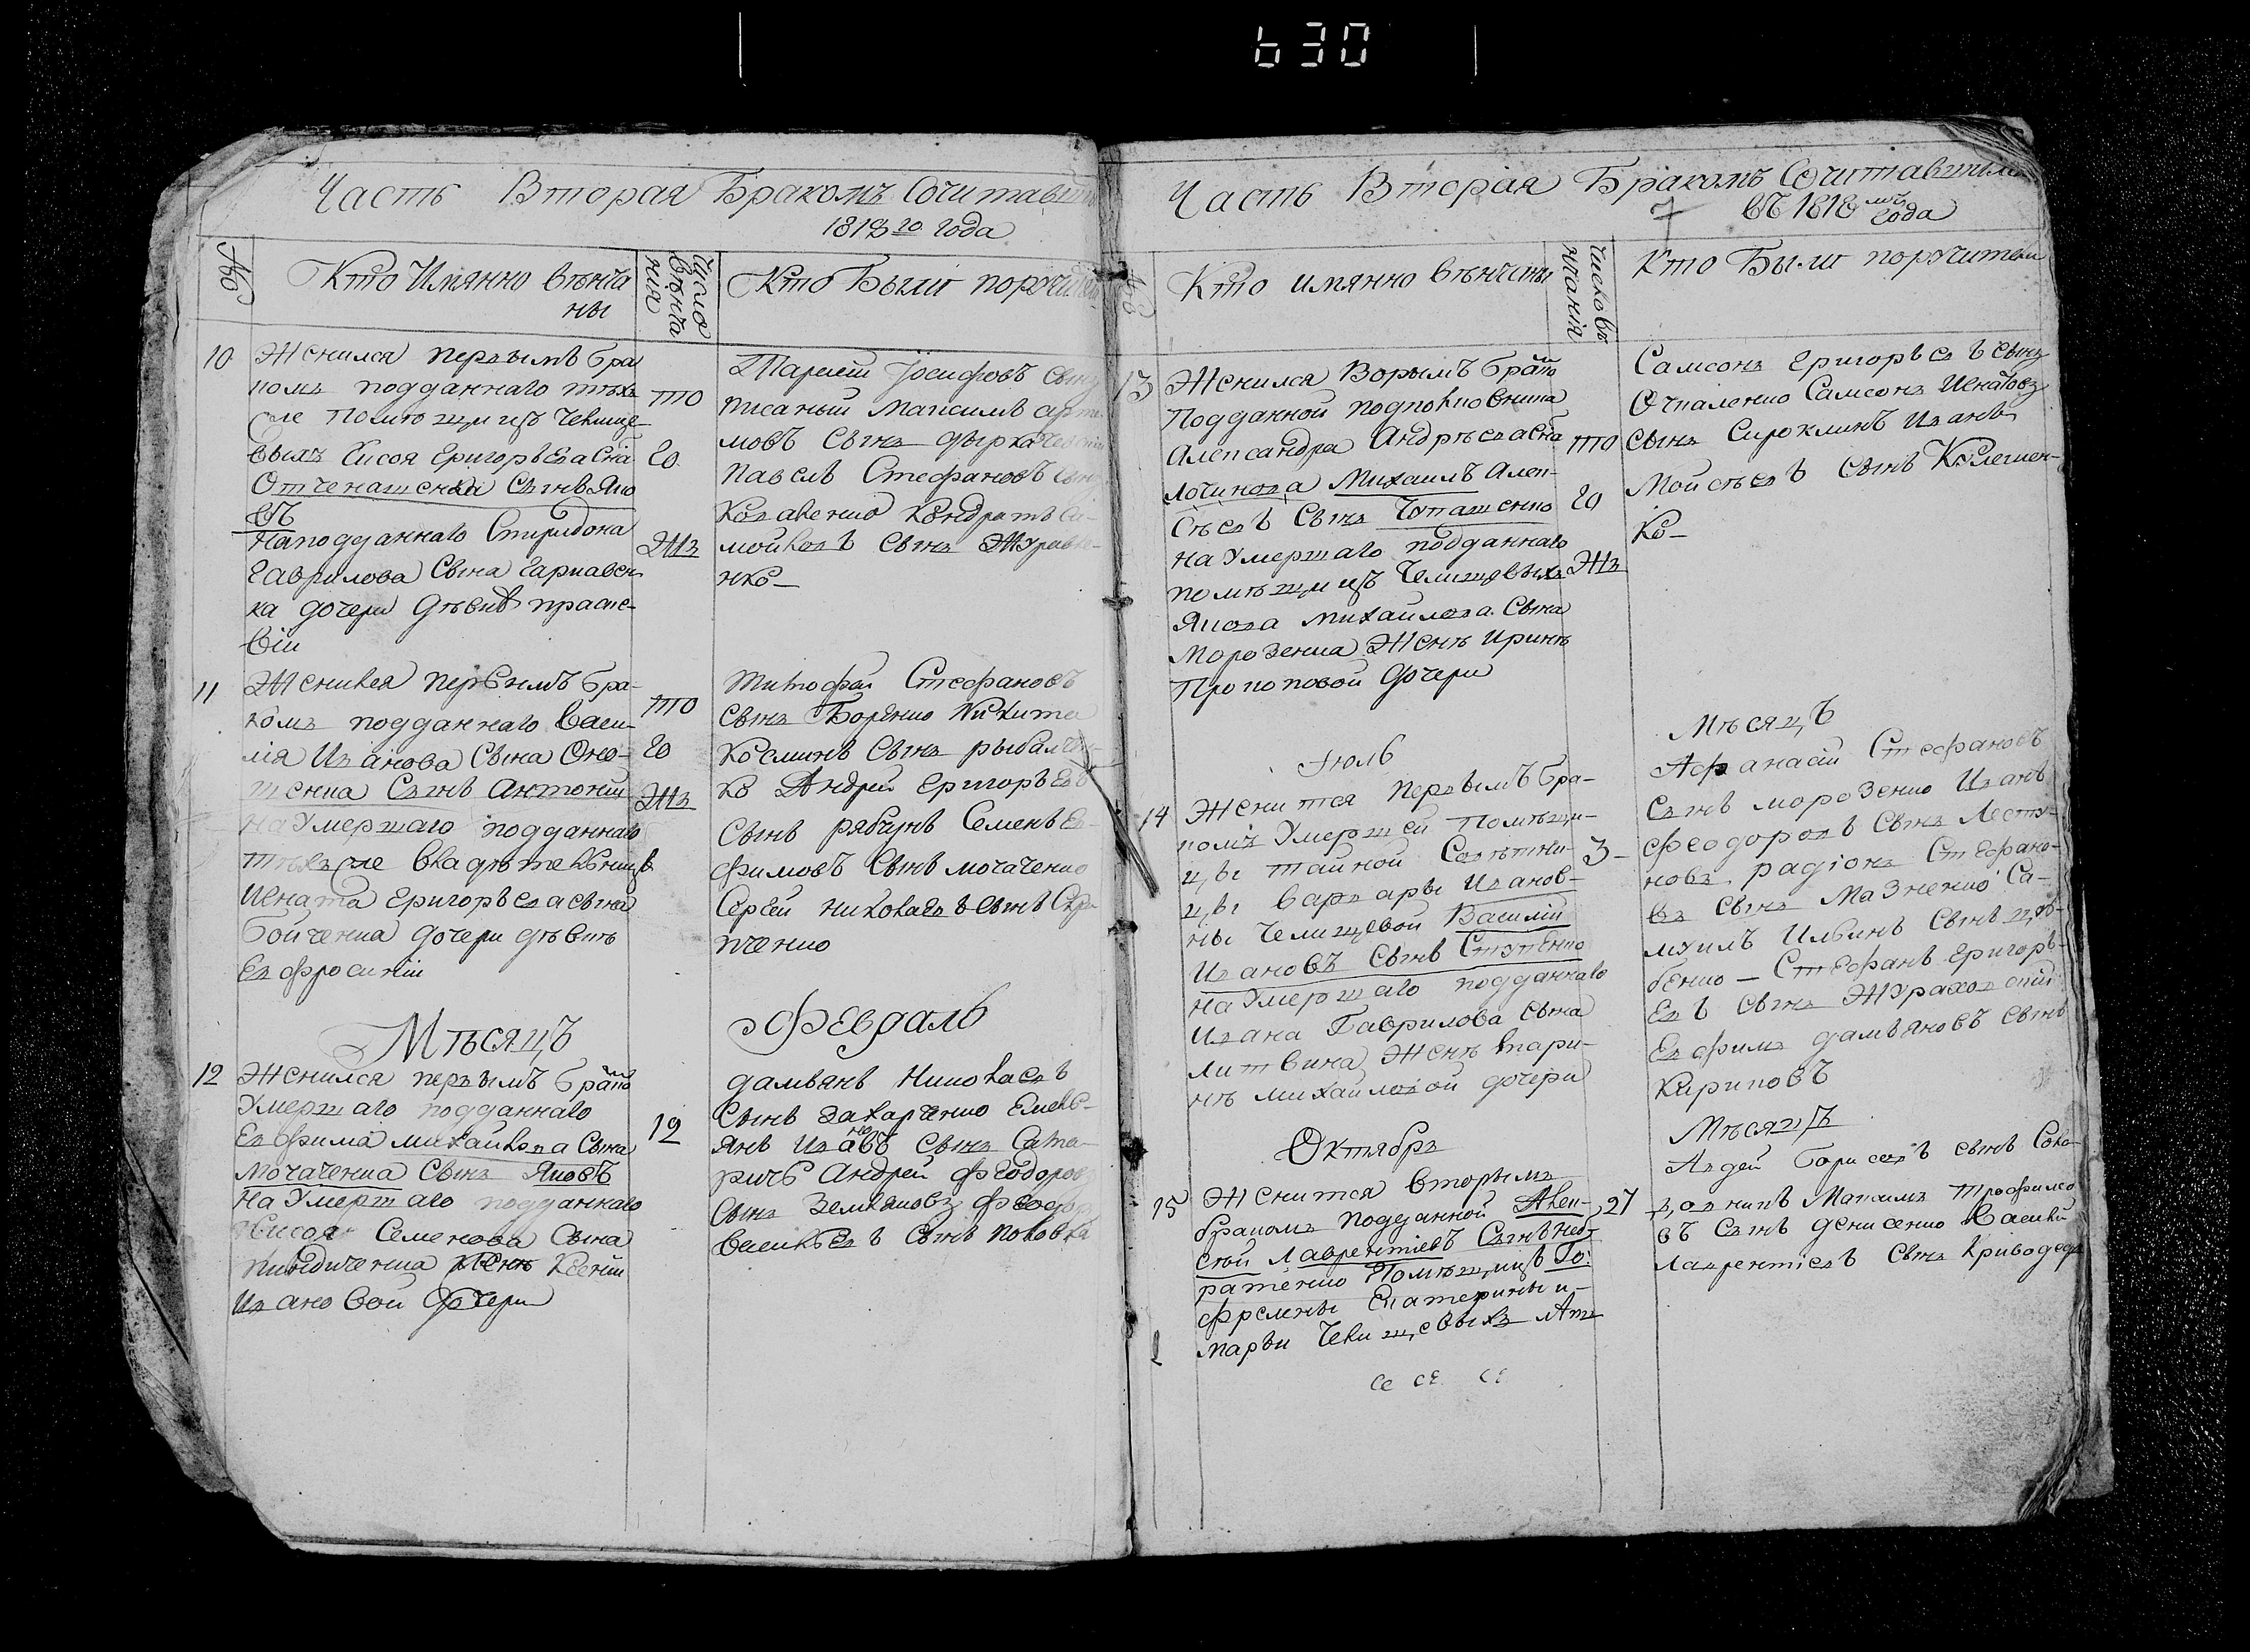 630
Часть Вторая Бракомъ Сочитавш
1818го года
№
Кто Имянно вѣнча
ны
Число
вѣнча
ния
Кто Были поручи
10
Женился первымъ бра
комъ подданнаго тѣхъ
же помѣщицъ Челище-
выхъ Сисоя Григорьева Сна
Отченашенка Сынъ Яко
въ
на подданнаго Спиридона
Гаврилова Сына Гаркавен
ка дочери дѣвкѣ праске-
віи
то
го
Жъ
Тарасій Іосифовъ Сынъ
писаный Максимъ арте
мовъ Сынъ
Павелъ Стефановъ Сынъ
Коваленко Кондратъ Са-
мойловъ Сынъ Журавле-
нко
11
Женился первымъ бра-
комъ подданнаго Васи-
лія Иванова Сына Оно-
шенка Сынъ Антоній
на умершаго подданнаго
тѣхъ же владѣтельницъ
Игната Григорьева сына
Бойченка дочери дѣвкѣ
Евфросиніи
то
го
Жъ
Тимофей Стефановъ
Сынъ Боренко Никита
Козминъ Сынъ рыбалче-
ко Андрей Григорьевъ
Сынъ рябчунъ Семенъ Ев-
фимовъ Сынъ мочаченко
Сергей николаевъ Сынъ Скри
пченко
Мѣсяцъ
Февраль
12
Женился первымъ брако
мъ
Умершаго подданнаго
Евфима михайлова Сына
Мочаченка Сынъ Яковъ
на Умершаго подданнаго
Сисоя Семенова Сына
Жены Ксеніи
Ивановой дочери
12
дамьянъ Николаевъ
Сынъ Захарченко Емель-
янъ Ивановъ Сынъ Сата-
ричь Андрей Феодоровъ
Сынъ Земляковъ Феодоръ
Васильевъ Сынъ
Часть Вторая Бракомъ Сочитавшимся
7
въ 1818 мъ года
№
Кто имянно вѣнчаны
Число въ
нчания
Кто Были поручители
13
Женился Вторымъ брако
мъ
Подданной подполковника
Александра Андрѣева Сна
Логинова Михаилъ Алек-
сѣевъ Сынъ Чупашенко
на Умершаго подданнаго
помѣщицъ Челищевыхъ
Якова Михайлова Сына
Морозенка Женѣ Иринѣ
Прокоповой дочери
то
го
Жъ
Самсонъ Григорьевъ Сынъ
Очкаленко Самсонъ Игнатовъ
Сынъ Сироклинъ Иванъ
Мойсѣевъ Сынъ Колешен-
ко
Іюль
Мѣсяцъ
14
Женится первымъ бра-
комъ Умершей помѣщи-
цы тайной Совѣтни-
цы варвары Иванов-
ны Челищевой Василій
Ивановъ Сынъ Ступенко
на Умершаго подданнаго
Ивана Гаврилова Сына
Литвина Женѣ Мари-
нѣ михайловой дочери
3
Афанасій Стефановъ
Сынъ морозенко Иванъ
Феодоровъ Сынъ Лесту-
новъ радіонъ Стефано-
въ Сынъ Мазненко Са-
муилъ Ильинъ Сынъ цов-
бенко Стефанъ Григорь-
евъ Сынъ Жураховскій
Евфимъ дамьяновъ Сынъ
Кириковъ
Октябрь
Мѣсяцъ
15
Женится вторымъ
бракомъ подданной Алек-
сѣй Лаврентіевъ Сынъ
помѣщицъ
Екатерины и
марьи Челищевыхъ
27
Авдей борисовъ Сынъ
Максимъ трофимо
въ Сынъ денисенко Василій
Лаврентіевъ Сынъ Криводед